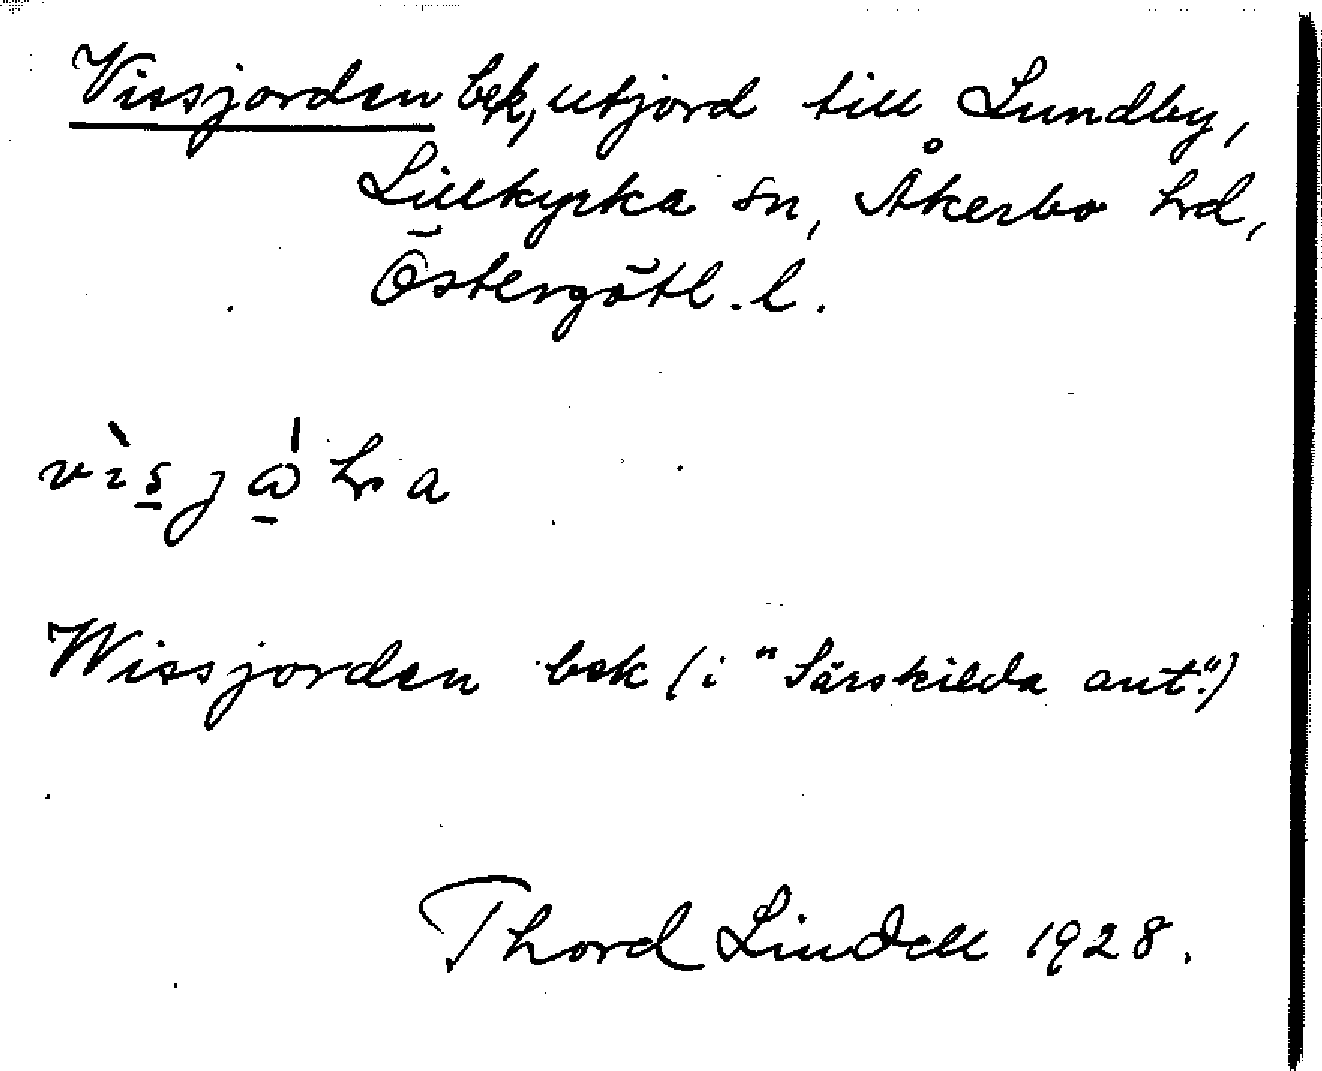 Vissjorden bek, utjord till Lundby,
Lillkyrka sn, Åkerbo hd,
Östergötl. l.
Wissjorden bek (i "Särskilda ant.")
Thord Lindell 1928.